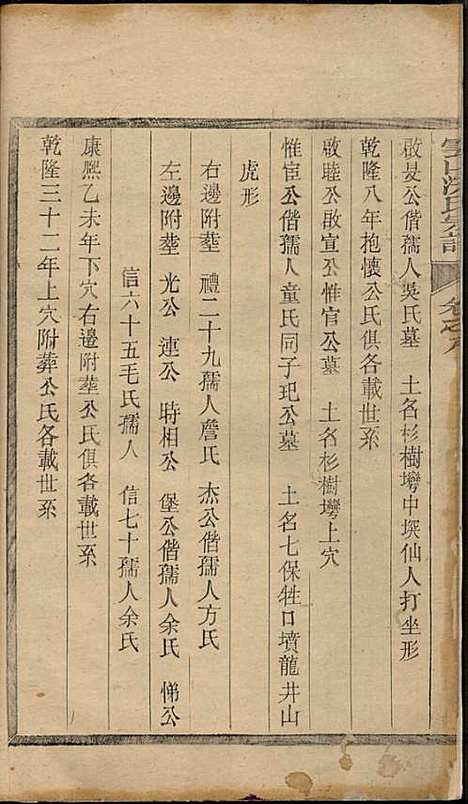 氏宗譜
卷之八
啟旻公偕孺人吳氏墓 土名杉樹塆中塅仙人打坐形
乾隆八年抱懷公氏俱各載世系
啟睦公啟宣公惟官公墓 土名杉樹塆上穴
惟宦公偕孺人童氏同子玘公墓 土名七保牲口墳龍井山
虎形
右邊附塟 禮二十九孺人詹氏 杰公偕孺人方氏
左邊附塟 光公 連公 時相公 堡公偕孺人余氏 悌公
信六十五毛氏孺人 信七十孺人余氏
康熈乙未年下穴右邊附塟公氏俱各載世系
乾隆三十二年上穴附葬公氏各載世系